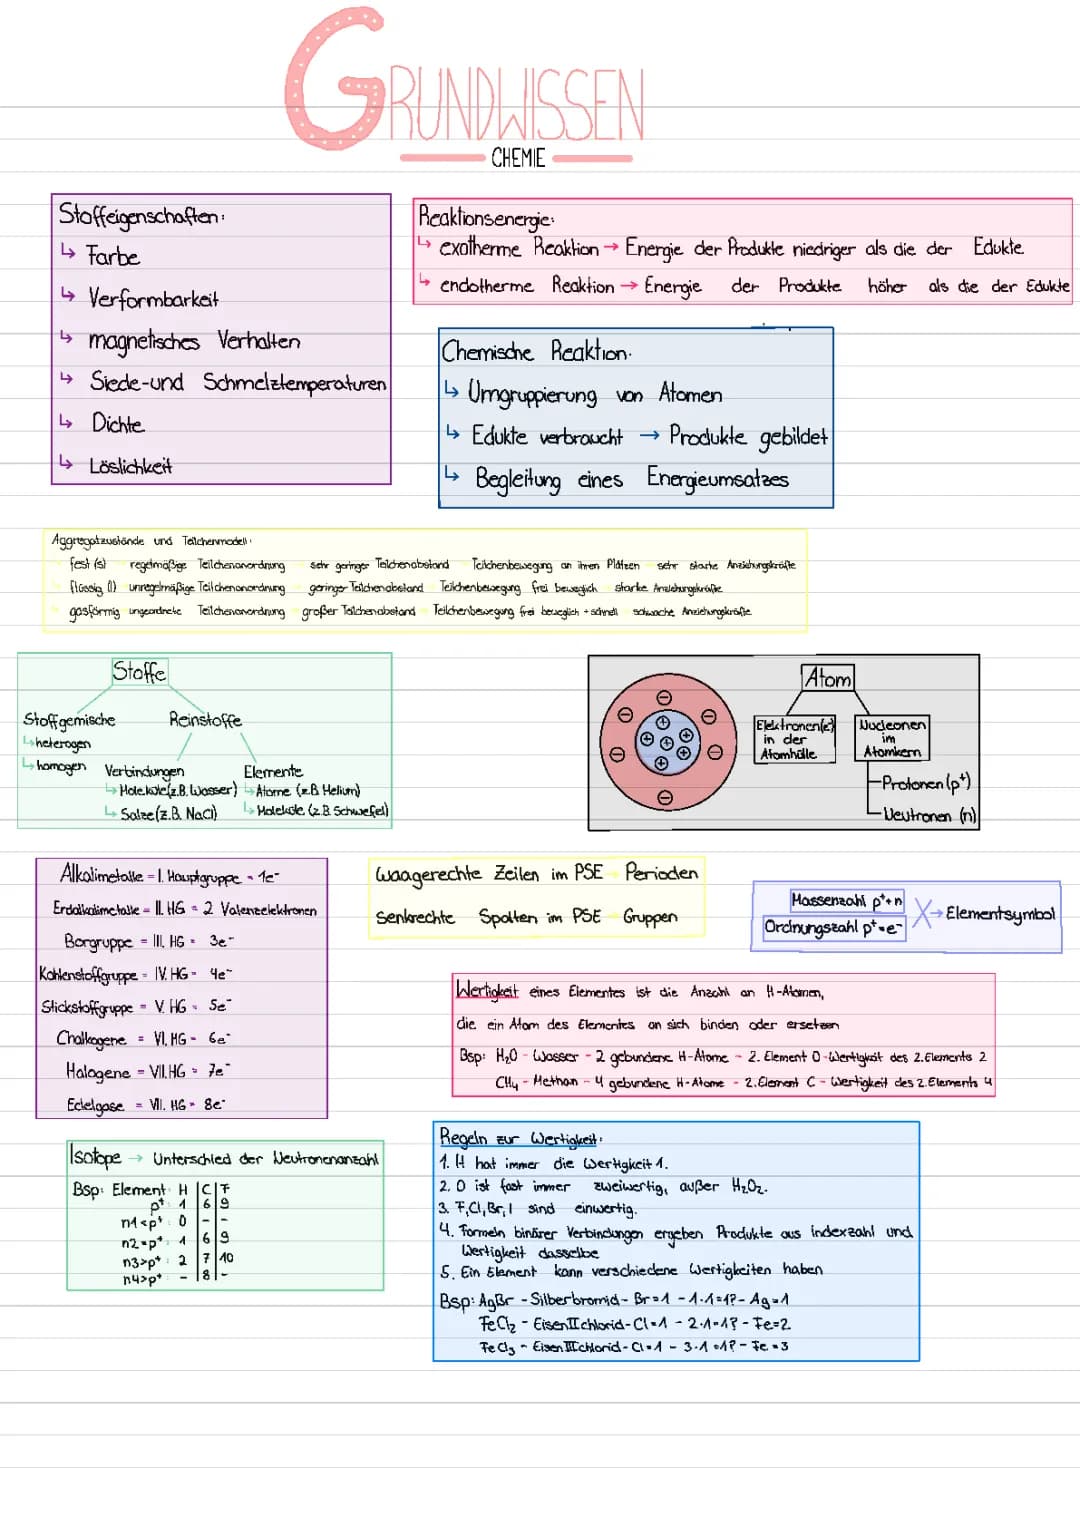 GRUNDWISSEN
CHEMIE
Stoffeigenschaften:
↳ Farbe
↳ Verformbarkeit
↳ magnetisches Verhalten
↳ Siede-und Schmelztemperaturen
↳ Dichte
↳ Löslichkeit
Reaktionsenergie:
↳ exotherme Reaktion → Energie der Produkte niedriger als die der Edukte
↳ endotherme Reaktion → Energie der Produkte höher als die der Edukte
Chemische Reaktion:
↳ Umgruppierung von Atomen
↳ Edukte verbraucht → Produkte gebildet
↳ Begleitung eines Energieumsatzes
Aggregatzustände und Teilchenmodell:
fest (s) regelmäßige Teilchenanordnung sehr geringer Teilchenabstand Teilchenbewegung an ihren Plätzen sehr starke Anziehungskräfte
flüssig (l) unregelmäßige Teilchenanordnung geringer Teilchenabstand Teilchenbewegung frei beweglich starke Anziehungskräfte
gasförmig ungeordnete Teilchenanordnung großer Teilchenabstand Teilchenbewegung frei beweglich + schnell schwache Anziehungskräfte
Stoffe
Stoffgemische Reinstoffe
↳ heterogen
↳ homogen
Verbindungen Elemente
↳ Moleküle (z.B. Wasser) ↳ Atome (z.B. Helium)
↳ Salze (z.B. NaCl) ↳ Moleküle (z.B. Schwefel)
Atom
Elektronen(e⁻)
in der
Atomhülle
Nucleonen
im
Atomkern
Protonen (p⁺)
Neutronen (n)
Alkalimetalle = I. Hauptgruppe = 1e⁻
Erdalkalimetalle = II. HG = 2 Valenzelektronen
Borgruppe = III. HG = 3e⁻
Kohlenstoffgruppe = IV. HG = 4e⁻
Stickstoffgruppe = V. HG = 5e⁻
Chalkogene = VI. HG = 6e⁻
Halogene = VII. HG = 7e⁻
Edelgase = VII. HG = 8e⁻
waagerechte Zeilen im PSE Perioden
senkrechte Spalten im PSE Gruppen
Massenzahl p⁺+n
Ordnungszahl p⁺=e⁻
X → Elementsymbol
Wertigkeit eines Elementes ist die Anzahl an H-Atomen,
die ein Atom des Elementes an sich binden oder ersetzen
Bsp: H₂O - Wasser - 2 gebundene H-Atome - 2. Element O - Wertigkeit des 2. Elements 2
CH₄ - Methan - 4 gebundene H-Atome - 2. Element C - Wertigkeit des 2. Elements 4
Isotope → Unterschied der Neutronenanzahl
Bsp: Element: H | C | F
p⁺: 1 | 6 | 9
n1<p⁺: 0 | - | -
n2=p⁺: 1 | 6 | 9
n3>p⁺: 2 | 7 | 10
n4>p⁺: - | 8 | -
Regeln zur Wertigkeit:
1. H hat immer die Wertigkeit 1.
2. O ist fast immer zweiwertig, außer H₂O₂.
3. F, Cl, Br, I sind einwertig.
4. Formeln binärer Verbindungen ergeben Produkte aus Indexzahl und
Wertigkeit dasselbe
5. Ein Element kann verschiedene Wertigkeiten haben
Bsp: AgBr - Silberbromid - Br=1 - 1·1=1? - Ag=1
FeCl₂ - EisenIIchlorid - Cl=1 - 2·1=1? - Fe=2
FeCl₃ - EisenIIIchlorid - Cl=1 - 3·1=1? - Fe=3